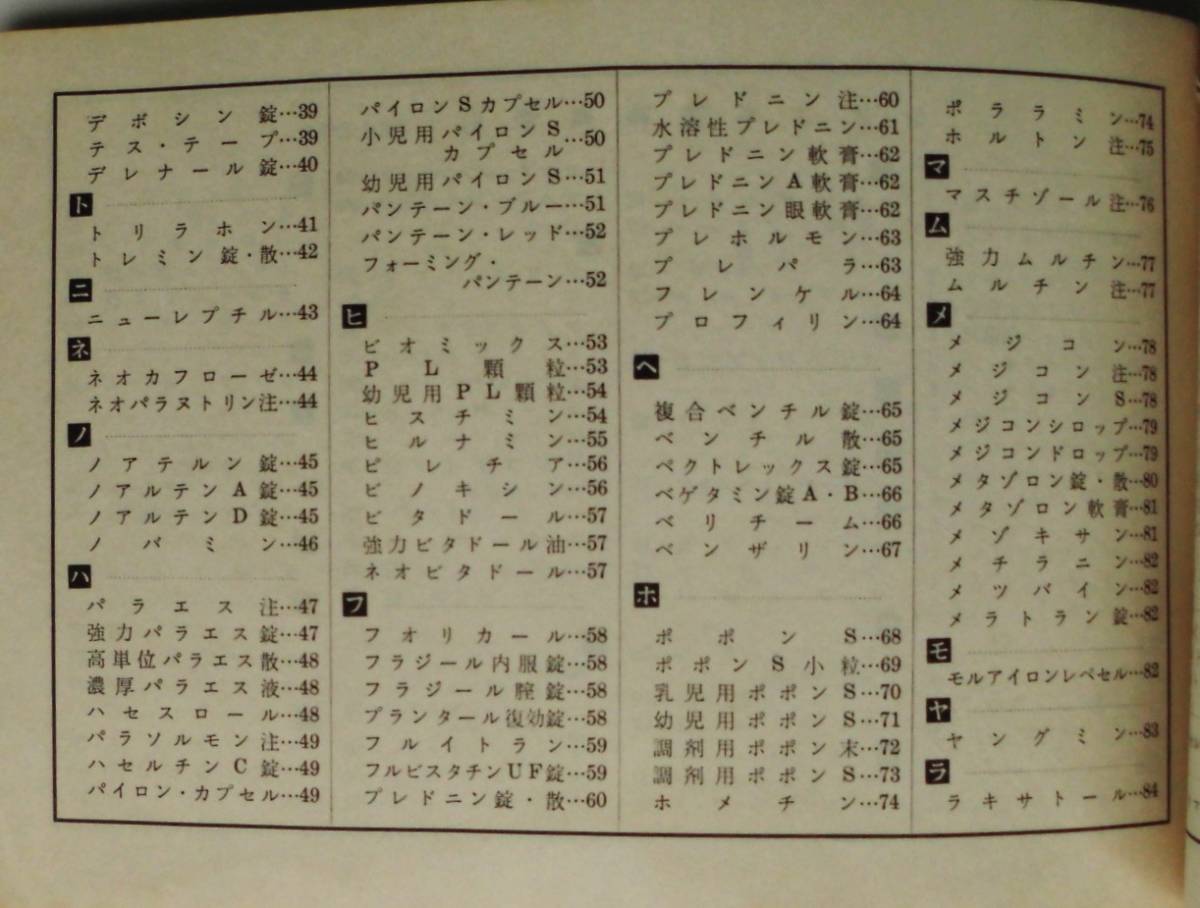 デボシン錠…39
テス・テープ…39
デレナール錠…40
ト
トリラホン…41
トレミン錠・散…42
ニ
ニューレプチル…43
ネ
ネオカフローゼ…44
ネオパラヌトリン注…44
ノ
ノアテルン錠…45
ノアルテンA錠…45
ノアルテンD錠…45
ノバミン…46
ハ
パラエス注…47
強力パラエス錠…47
高単位パラエス散…48
濃厚パラエス液…48
ハセスロール…48
パラソルモン注…49
ハセルチンC錠…49
パイロン・カプセル…49
パイロンSカプセル…50
小児用パイロンS
カプセル…50
幼児用パイロンS…51
パンテーン・ブルー…51
パンテーン・レッド…52
フォーミング・
パンテーン…52
ヒ
ビオミックス…53
PL顆粒…53
幼児用PL顆粒…54
ヒスチミン…54
ヒルナミン…55
ピレチア…56
ビノキシン…56
ビタドール…57
強力ビタドール油…57
ネオビタドール…57
フ
フオリカール…58
フラジール内服錠…58
フラジール腟錠…58
プランタール復効錠…58
フルイトラン…59
フルビスタチンUF錠…59
プレドニン錠・散…60
プレドニン注…60
水溶性プレドニン…61
プレドニン軟膏…62
プレドニンA軟膏…62
プレドニン眼軟膏…62
プレホルモン…63
プレパラ…63
フレンケル…64
プロフィリン…64
ヘ
複合ベンチル錠…65
ベンチル散…65
ベクトレックス錠…65
ベゲタミン錠A・B…66
ベリチーム…66
ベンザリン…67
ホ
ポポンS…68
ポポンS小粒…69
乳児用ポポンS…70
幼児用ポポンS…71
調剤用ポポン末…72
調剤用ポポンS…73
ホメチン…74
ポララミン…74
ホルトン注…75
マ
マスチゾール注…76
ム
強力ムルチン…77
ムルチン注…77
メ
メジコン…78
メジコン注…78
メジコンS…78
メジコンシロップ…79
メジコンドロップ…79
メタゾロン錠・散…80
メタゾロン軟膏…81
メゾキサン…81
メチラニン…82
メツバイン…82
メラトラン錠…82
モ
モルアイロンレペセル…82
ヤ
ヤングミン…83
ラ
ラキサトール…84